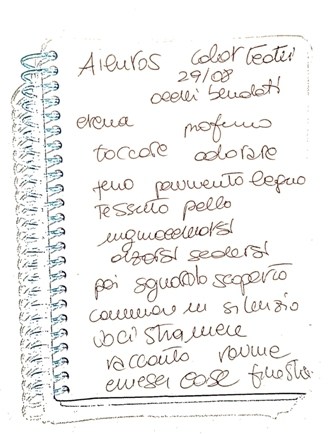 Aienros color teatri
29/08
occhi bendati
arena profumo
toccare odorare
fieno pavimento legno
tessuto pelle
inginocchiarsi
alzarsi sedersi
poi sguardo scoperto
camminare in silenzio
voci straniere
racconto rovine
case finestre